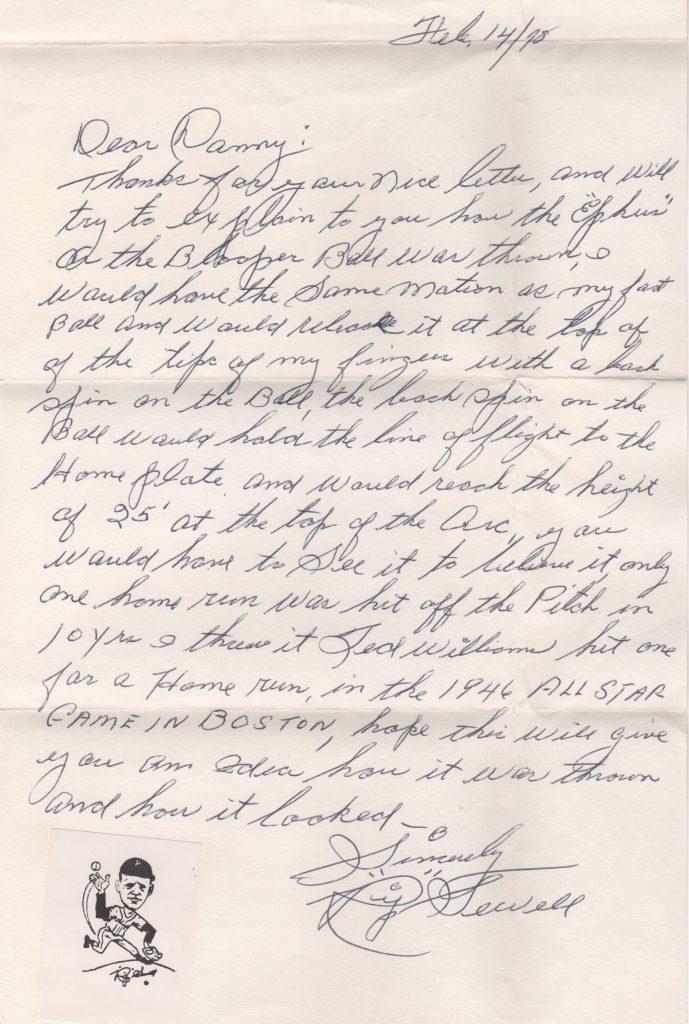 Feb, 14/75
Dear Danny:
Thanks for your nice letter, and will
try to explain to you how the "Ephus"
or the Blooper Ball was thrown, I
would have the same motion as my fast
Ball and would release it at the top of
of the tips of my fingers with a back
spin on the Ball, the back spin on the
Ball would hold the line of flight to the
Home plate and would reach the height
of 25' at the top of the Arc, you
would have to see it to believe it, only
one home run was hit off the Pitch in
10 yrs I threw it Ted Williams hit one
for a Home run, in the 1946 ALL STAR
GAME IN BOSTON, hope this will give
you an Idea how it was thrown
and how it looked—
Sincerely
"Rip" Sewell
P